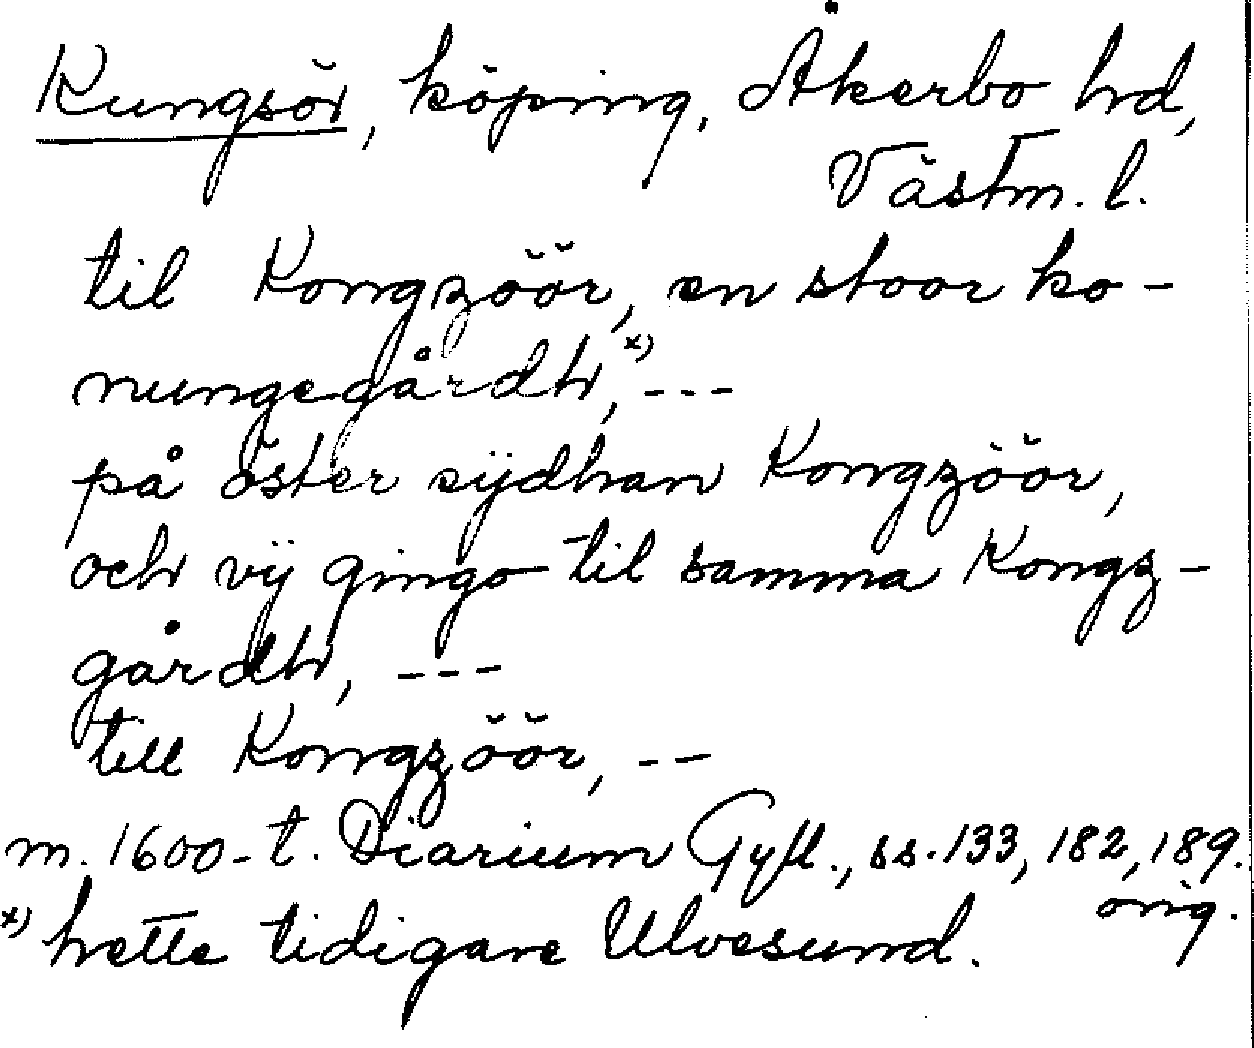 Kungsör, köping, Åkerbo hd,
Västm. l.
til Kongzöör, en stoor ko-
nungegårdh,x) ---
på öster sijdhan Kongzöör,
och vij gingo til samma Kongz-
gårdh, ---
till Kongzöör, --
m. 1600-t. Diarium Gyll., ss. 133, 182, 189.
orig.
x) hette tidigare Ulvesund.